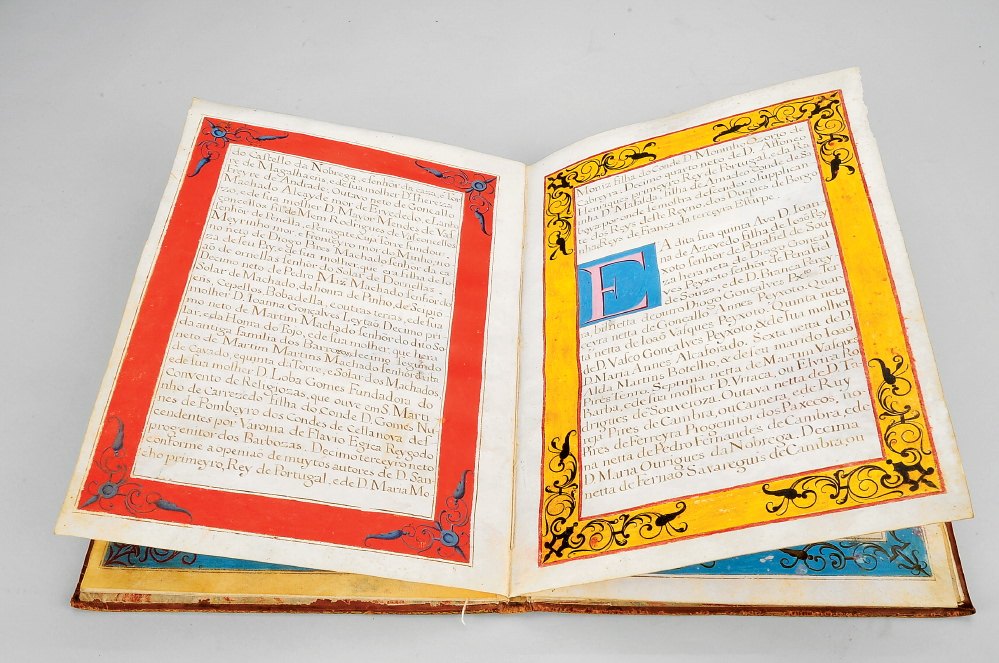 do Castello da Nobrega, e senhor da caza, e ter
re de Magalhaens, e de sua molher D. Thereza
Freyre de Andrade: Outavo neto de Goncallo
Machado Alcayde mor de Freyxedo, e de Lan
zozo, e de sua molher D. Mayor Mendes de Vas
concellos filha de Mem Rodrigues de Vasconcellos
senhor de Penella, Penagate, Caza forte, Fundou,
Meyrinho mor de entre Douro, e Minho. Nono
no neto de Diogo Pires Machado Senhor da ca
za de seu Pay, e de sua molher, que era filha de
do ornellas senhor do Solar de Dornellas.
Decimo neto de Pedro Miz Machado senhor do
Solar de Machado, da honra de Pinho, de Scipio
ens, Cepellos Bobadella, e outras terras, e de sua
molher D. Joanna Gonçalves Leytaõ Decimo pri
mo neto de Martim Machado senhor do dito So
lar, e da Honra do Pojo, e de sua molher que hera
da antiga familia dos Barrozos: decimo segundo
neto de Martim Martins Machado senhor de en
tre Cavado, e quinta da Torre, e Solar dos Machados
e de sua molher D. Loba Gomes Fundadora do
Convento de Religiozas, que ouve em S. Marti
nho de Carrazedo filha do Conde D. Gomes Nu
nes de Pombeyro dos Condes de Cellanova des
cendentes por Varonia de Flavio Egica Rey godo
progenitor dos Barbozas. Decimo terceyro neto
conforme a openiaõ de muytos autores de D. San
cho primeyro, Rey de Portugal, e de D. Maria Mo
Moniz filha do Conde D. Moninho Ozorio de
Cabreyra. Decimo quarto neto de D. Affonço
Henriques primeyro Rey de Portugal, e da Ra
inha D. Mafalda filha de Amadeo Conde de Sa
boya, aonde emtronca descendo, e supplican
te por Reys deste Reyno dos Duques de Borgo
nha Reys de França da terceyra Estirpe
E
A dita sua quinta Avo D. Joan
na de Azevedo filha de Joaõ Pey
xoto senhor de Penafiel de Sou
za, e hera neta de Diogo Gonçal
ves Peyxoto senhor de Penafiel
de Souza, e de D. Branca Perey
ra bisnetta de outro Diogo Gonçalves Pxto. Ter
ceyra netta de Goncallo Annes Peyxoto. Quar
ta netta de Joaõ Vasques Peyxoto. Quinta netta
de D. Vasco Gonçalves Peyxoto & de sua molher
D. Maria Annes Alcaforado. Sexta netta de D.
Alda Martins Botelho, e de seu marido Joaõ
Pires Tenro. Septima netta de Martim Vasques
Barba, e de sua molher D. Vrraca, ou Elena Ro
drigues de Souvoroza. Outava netta de D. Es
neya Pires de Cambra, ou Carneta, e de Ruy
Pais de Ferreyra Progenitor dos Paxecos, no
na netta de Pedro Fernandes de Cambra, e de
D. Maria Ourigues da Nobrega. Decima
netta de Fernaõ Savareguis de Cambra, ou